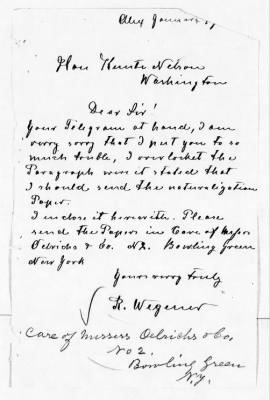 Alex January
Hon Knute Nelson
Washington
Dear Sir!
Your Telegram at hand, I am
verry sorry that I put you to so
much touble, I over locket the
Paragraph were it stated that
I should send the naturalization
Paper.
I inclose it herewith. Please
send the Papers in Care of Messrs
Oelrichs & Co. No 2. Bowling Green
New York
Yours verry truly
R. Wegener
Care of Messrs Oelrichs & Co.
No 2.
Bowling Green
N.Y.